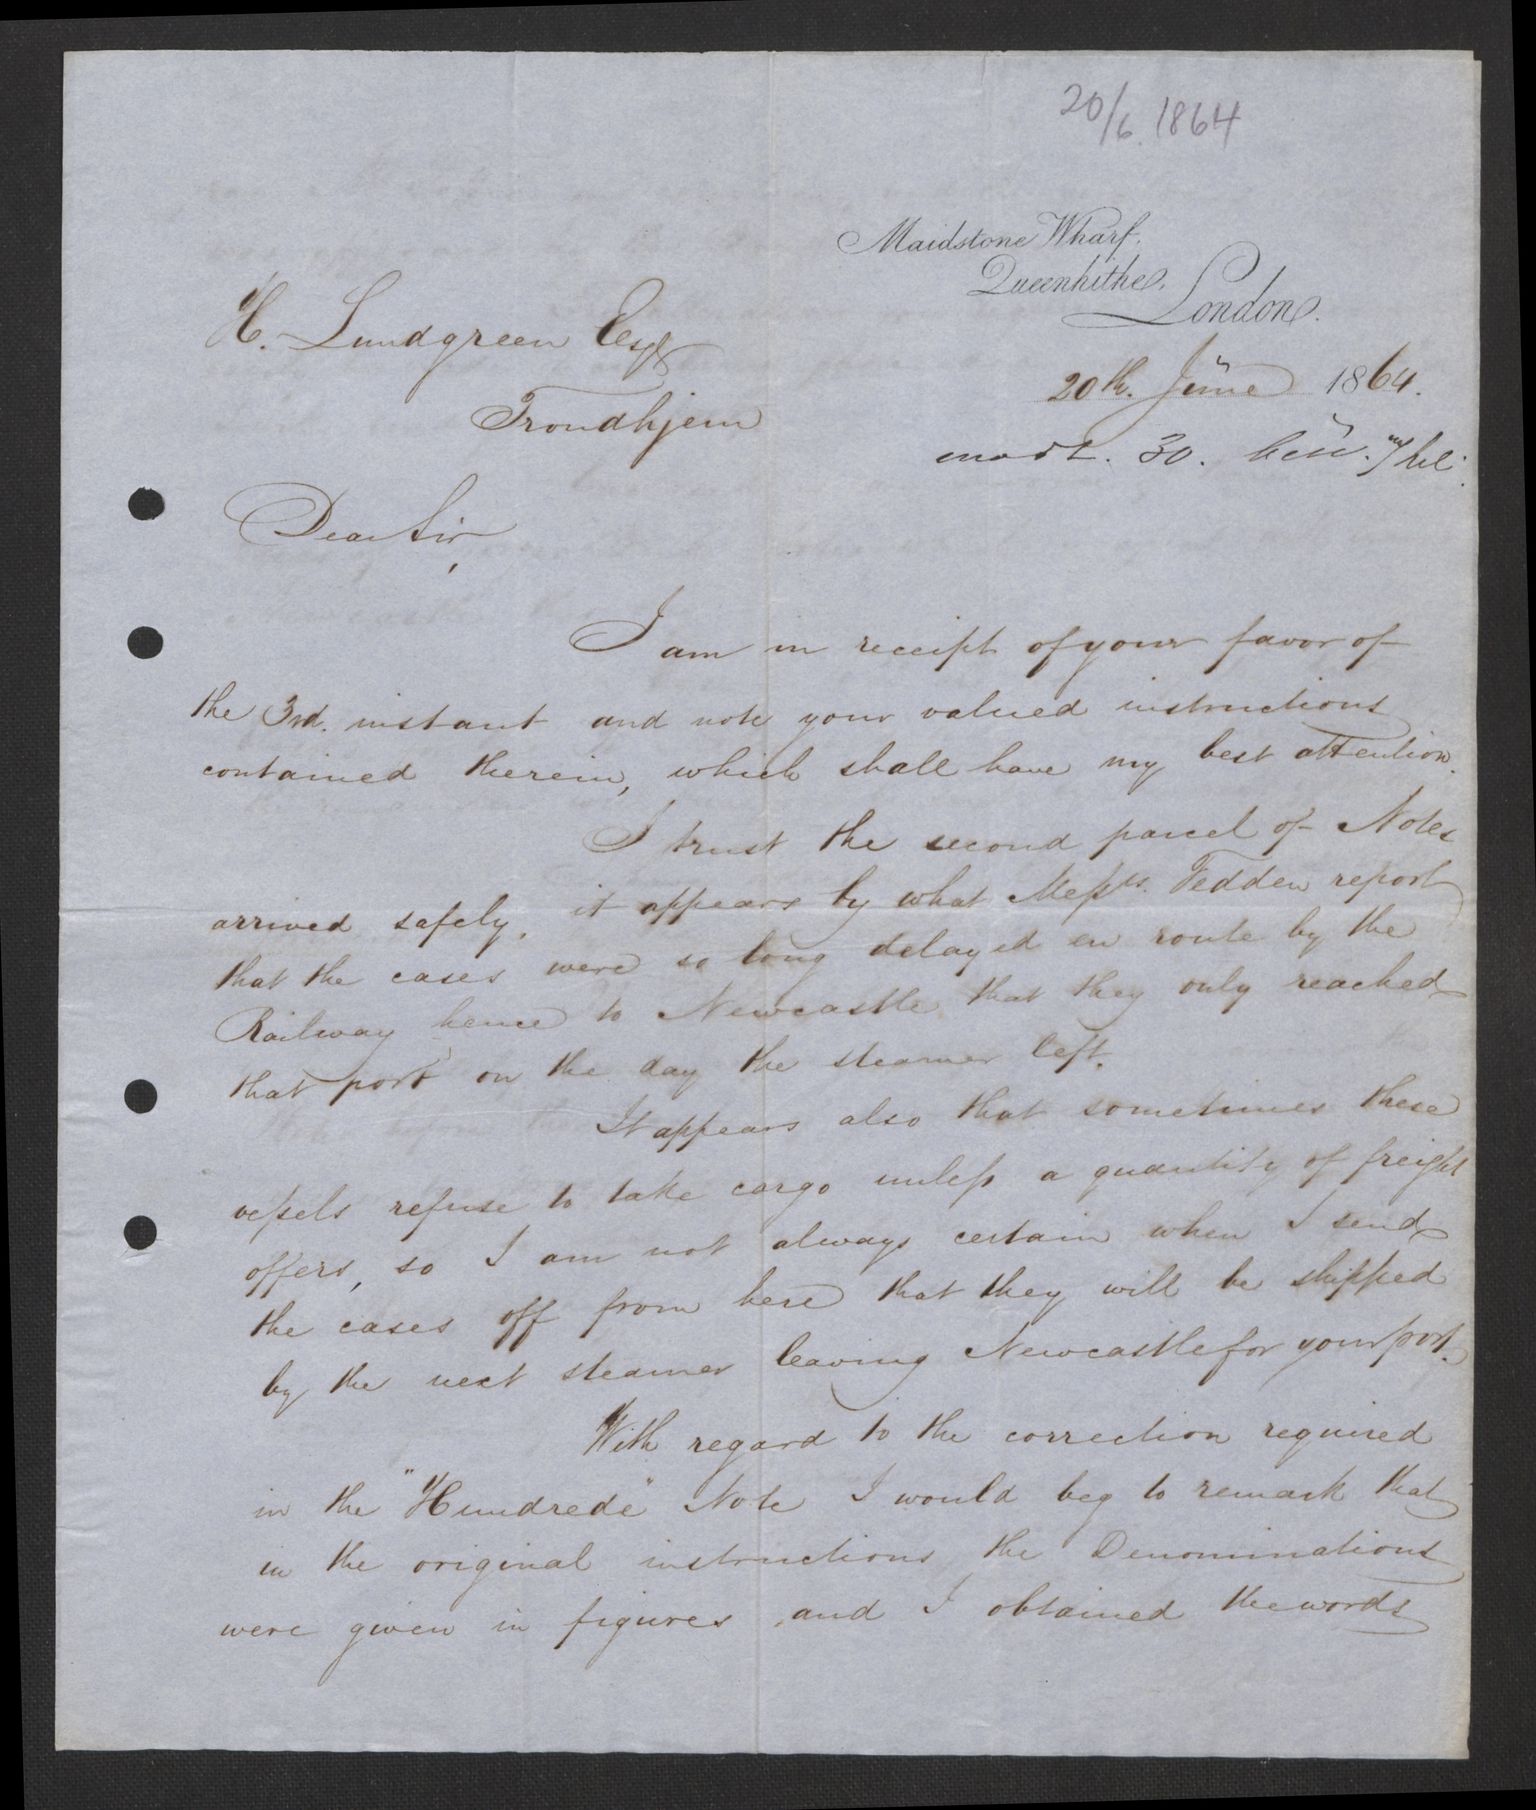 20/6 1864
Maidstone Wharf,
Queenhithe,
London.
H. Lundgreen Esqr
20th. June 1864.
Trondhjem
modt. 30.
Dear Sir,
I am in receipt of your favor of
the 3rd. instant and note your valued instructions
contained therein, which shall have my best attention.
I trust the second parcel of Notes
arrived safely, it appears by what Messrs. Tedden report
that the cases were so long delayed en route by the
Railway hence to Newcastle that they only reached
that port on the day the steamer left.
It appears also that sometimes these
vessels refuse to take cargo unless a quantity of freight
offers, so I am not always certain when I send
the cases off from here that they will be shipped
by the next steamer leaving Newcastle for your port.
With regard to the correction required
in the "Hundrede" Note I would beg to remark that
in the original instructions the Denominations
were given in figures and I obtained the words